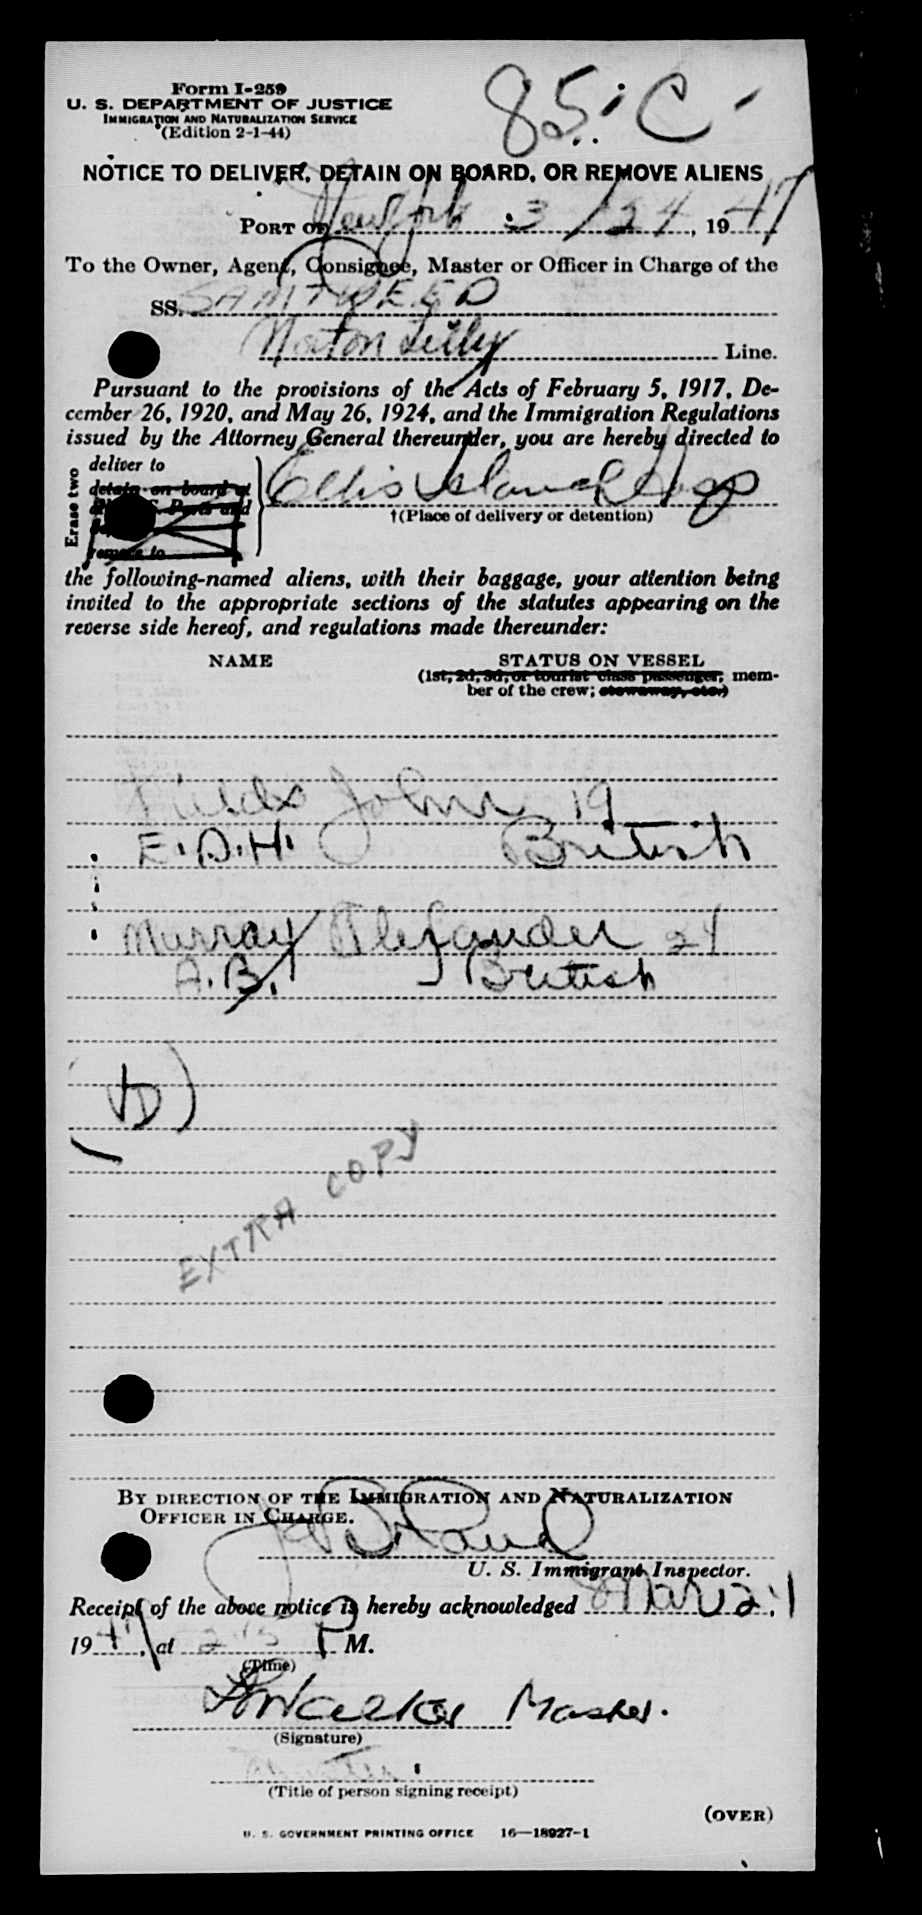 85. C.
Form I-259
U. S. DEPARTMENT OF JUSTICE
IMMIGRATION AND NATURALIZATION SERVICE
(Edition 2-1-44)
NOTICE TO DELIVER, DETAIN ON BOARD, OR REMOVE ALIENS
PORT OF New York 3/24, 1947
To the Owner, Agent, Consignee, Master or Officer in Charge of the
SS. SAMTWEED
Norton Lilly Line.
Pursuant to the provisions of the Acts of February 5, 1917, De-
cember 26, 1920, and May 26, 1924, and the Immigration Regulations
issued by the Attorney General thereunder, you are hereby directed to
Erase two
deliver to
detain on board at
remove to
Ellis Island Hosp
†(Place of delivery or detention)
the following-named aliens, with their baggage, your attention being
invited to the appropriate sections of the statutes appearing on the
reverse side hereof, and regulations made thereunder:
NAME STATUS ON VESSEL
(1st, 2d, 3d, or tourist class passenger, mem-
ber of the crew; stowaway, etc.)
Fields John 19
E.D.H. British
Murray Alexander 24
A.B. British
(D)
EXTRA COPY
BY DIRECTION OF THE IMMIGRATION AND NATURALIZATION
OFFICER IN CHARGE.
U. S. Immigrant Inspector.
Receipt of the above notice is hereby acknowledged Mar 24,
1947, at 2:15 P M.
(Time)
Walker Master.
(Signature)
(Title of person signing receipt)
(OVER)
U. S. GOVERNMENT PRINTING OFFICE 16—18927-1